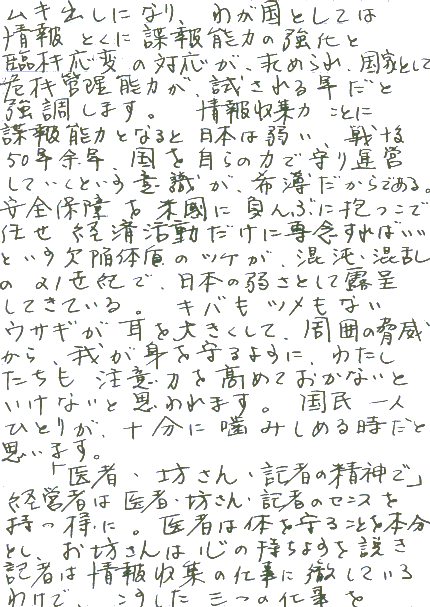 ムキ出しになり、わが国としては
情報とくに諜報能力の強化と
臨機応変の対応が、求められ、国家として
危機管理能力が、試される年だと
強調します。 情報収集力ことに
諜報能力となると日本は弱い、戦後
50年余年、国を自らの力で守り運営
していくという意識が、希薄だからである。
安全保障を米國に負んぶに抱っこで
任せ経済活動だけに専念すればいい
という欠陥体質のツケが、混沌、混乱
の21世紀で、日本の弱さとして露呈
してきている。 キバもツメもない
ウサギが耳を大きくして、周囲の脅威
から、我が身を守るように、わたし
たちも注意力を高めておかないと
いけないと思われます。 国民一人
ひとりが、十分に噛みしめる時だと
思います。
「医者・坊さん・記者の精神で」
経営者は医者・坊さん・記者のセンスを
持つ得に。医者は体を守ることを本分
とし、お坊さんは心の持ちようを説き
記者は情報収集の仕事に徹している
わけで、こうした三つの仕事を